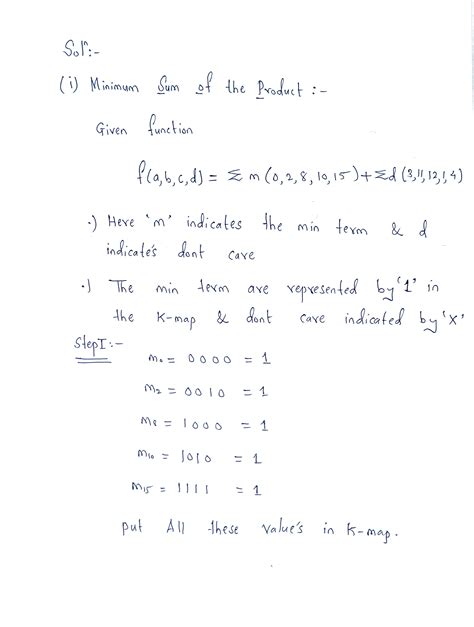 Solⁿ:-
(i) Minimum Sum of the Product :-
Given function
f(a,b,c,d) = Σ m (0,2,8,10,15) + Σd (3,11,12,1,4)
·) Here 'm' indicates the min term & d
indicate's dont care
·) The min term are represented by '1' in
the K-map & dont care indicated by 'x'
Step I :-
m₀ = 0000 = 1
m₂ = 0010 = 1
m₈ = 1000 = 1
m₁₀ = 1010 = 1
m₁₅ = 1111 = 1
put All these value's in K-map.